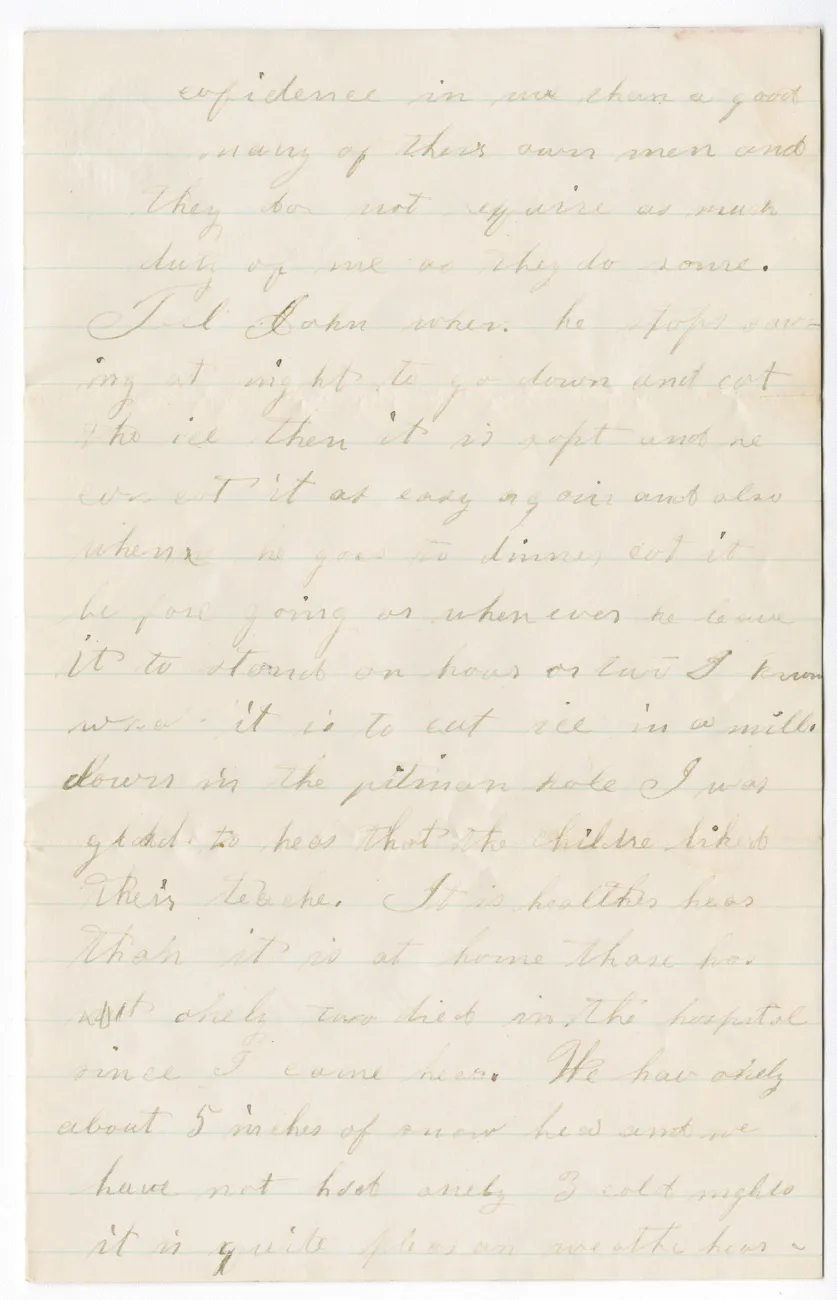 cofidence in me than a good
many of theis own men and
they do not equire as much
duty of me as they do some.
Tel John when he stops saw-
ing at night to go down and cut
the ice then it is soft and he
can cut it as easy again and also
when he goes to dinner cut it
be fore going or when ever he leave
it to stand an hour or two I know
what it is to cut ice in a mill
down in the pitman hole I was
glad to hear that the childre liked
their teache. It is healther hear
than it is at home thare has
not onely two died in the hospital
since I came hear. We hav onely
about 5 inches of snow hear and we
have not had onely 3 cold nights
it is quite pleasan weathe hear